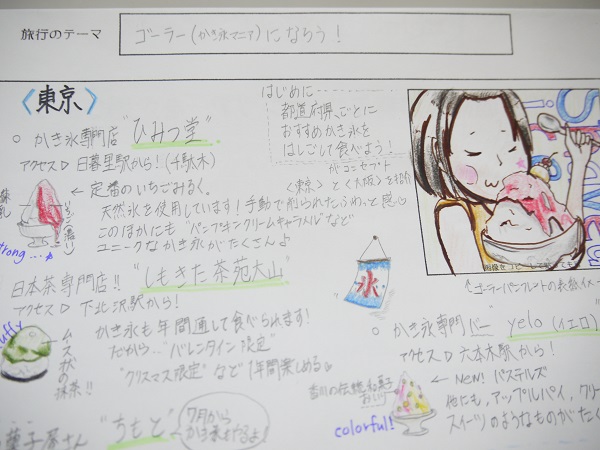 旅行のテーマ
ゴーラー(かき氷マニア)になろう!
はじめに
都道府県ごとに
おすすめかき氷を
はしごして食べよう!
がコンセプト
<東京>と<大阪>を紹
〈東京〉
○ かき氷専門店 "ひみつ堂"
アクセス▷ 日暮里駅から!(千駄木)
← 定番のいちごみるく。
天然氷を使用しています!手動で削られたふわっと感♡
このほかにも "パンプキンクリームキャラメル"など
ユニークなかき氷がたくさんよ
strong...
日本茶専門店!! "しもきた茶苑大山"
アクセス▷ 下北沢駅から!
ムース状の抹茶!!
かき氷も年間通して食べられます!
だから… "バレンタイン限定"
"クリスマス限定" など1年間楽しめる♡
氷
菓子屋さん "ちもと"
7月から
かき氷をやるよ!
画像をコピーして
↑ゴーラーパンフレットの表紙イメー
○ かき氷専門バー yelo(イエロ)
アクセス▷ 六本木駅から!
← NEW! パステルズ
他にも、アップルパイ、クリー
スイーツのようなものがたく
香川の伝統和菓子
おいり
colorful!